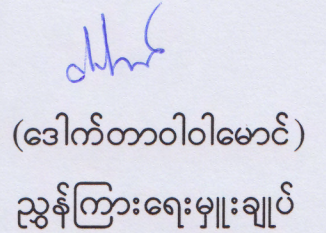 (ဒေါက်တာဝါဝါမောင်)
ညွှန်ကြားရေးမှူးချုပ်